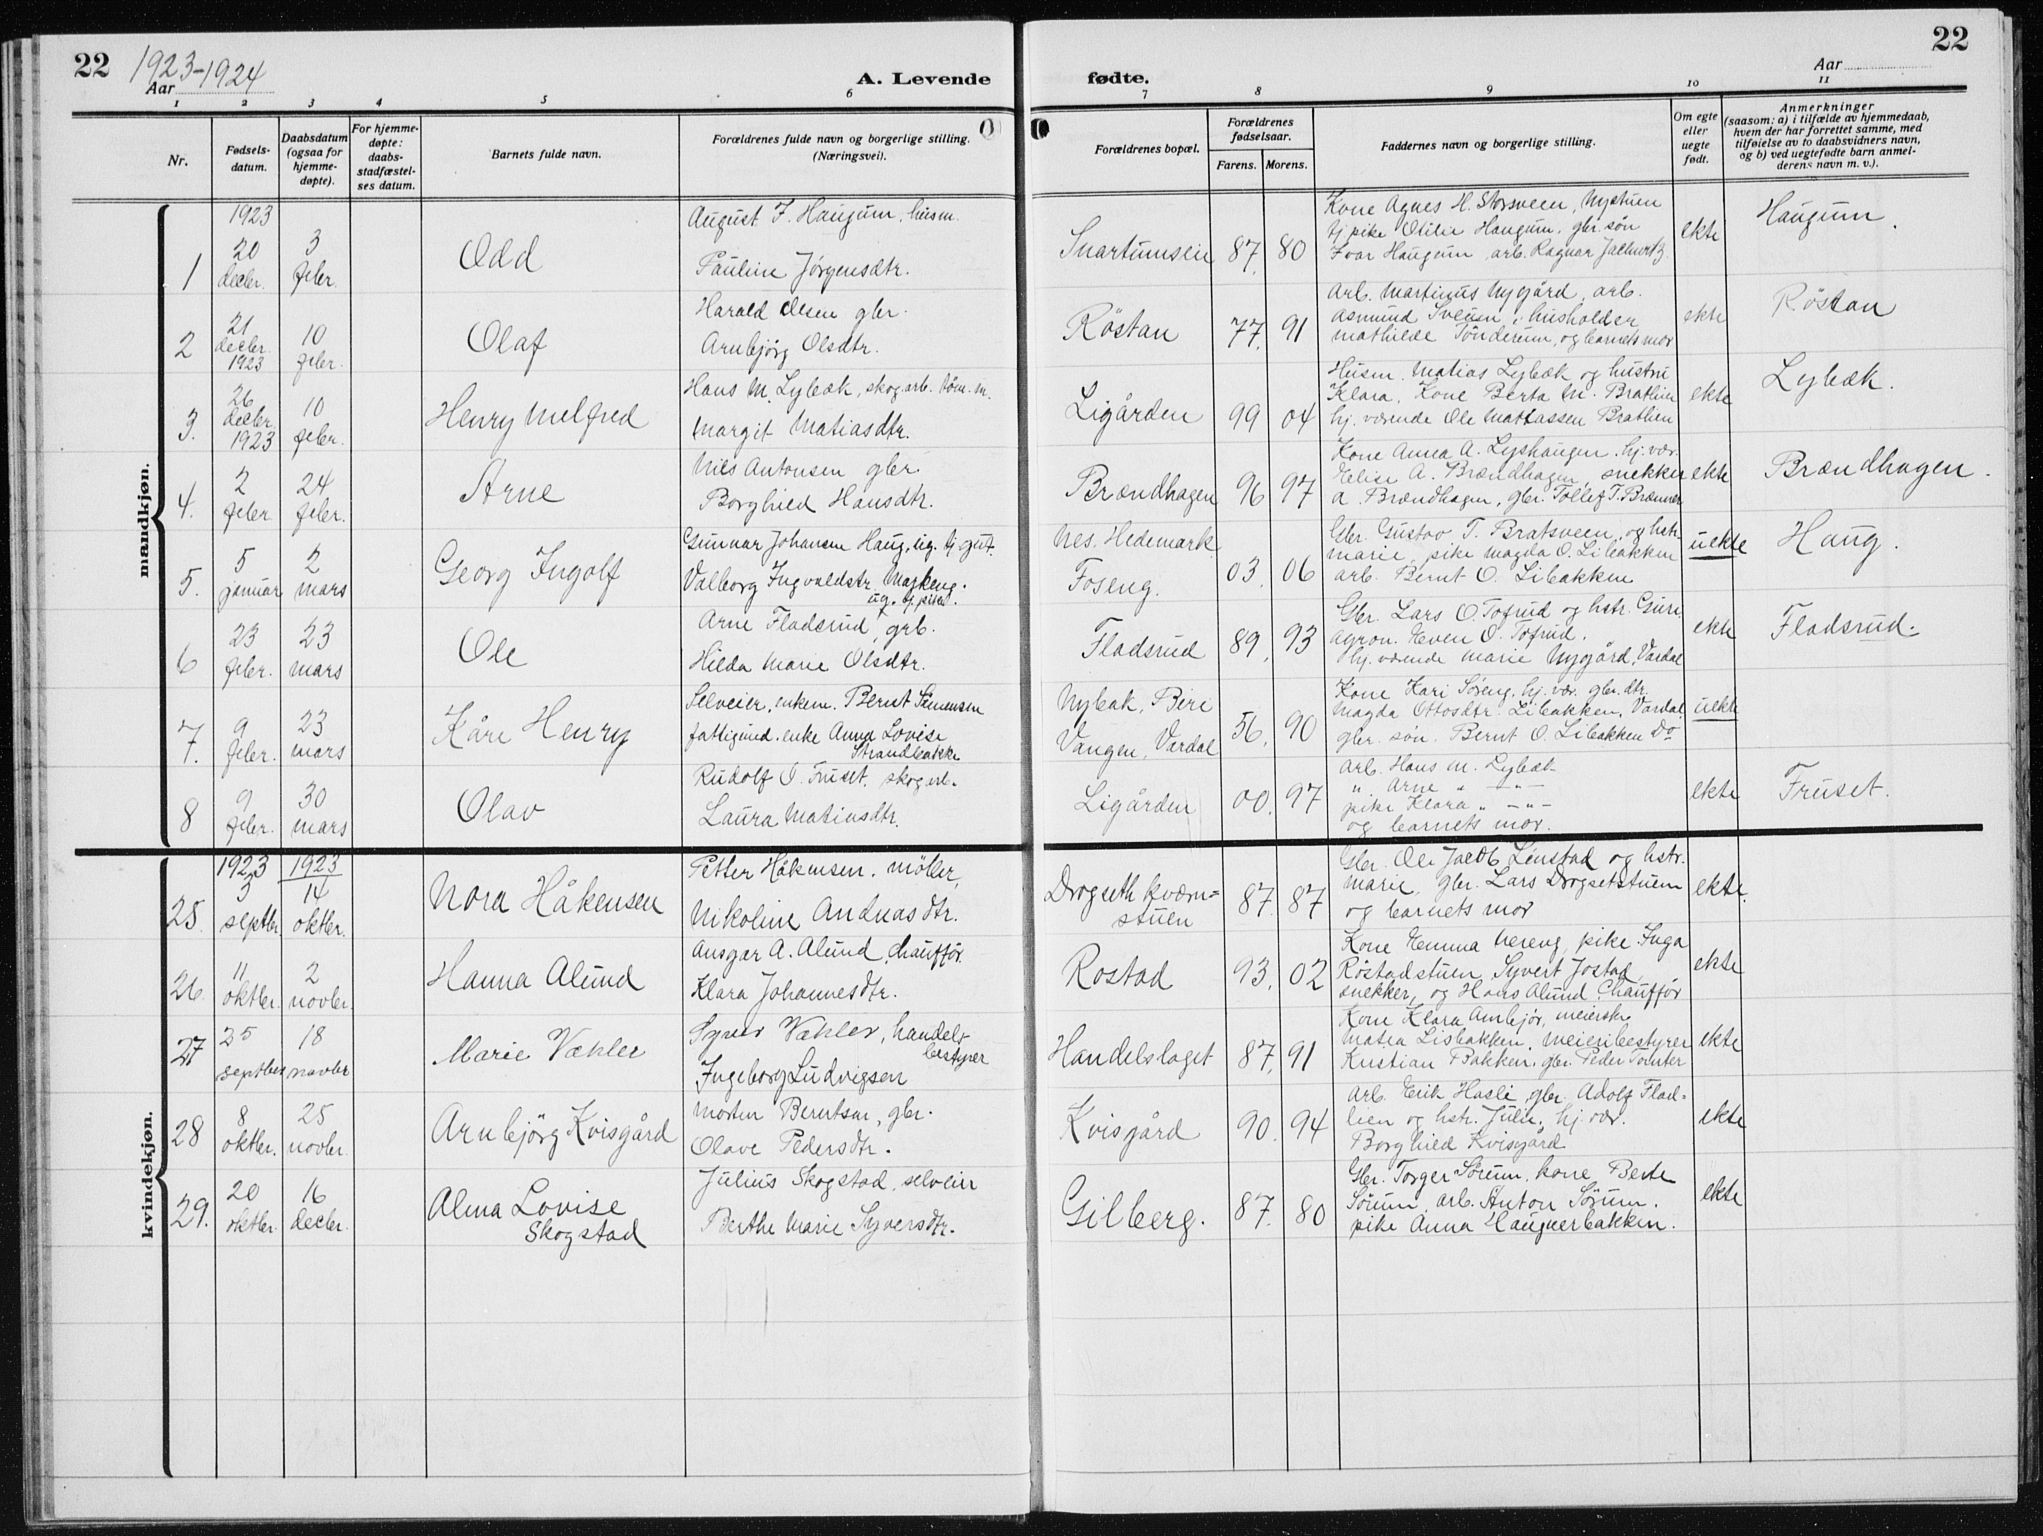 22 1923-1924
Aar
A. Levende fødte.
Aar 22
1 2 3 4 5 6 7 8 9 10 11
Nr.
Fødsels-
datum.
Daabsdatum
(ogsaa for
hjemme-
døpte).
For hjemme-
døpte:
daabs-
stadfæstel-
ses datum.
Barnets fulde navn.
Forældrenes fulde navn og borgerlige stilling.
(Næringsvei).
Forældrenes bopæl.
Forældrenes
fødselsaar.
Farens. Morens.
Faddernes navn og borgerlige stilling.
Om egte
eller
uegte
født.
Anmerkninger
(saasom: a) i tilfælde av hjemmedaab,
hvem der har forrettet samme, med
tilføielse av to daabsvidners navn,
og b) ved uegtefødte barn anmel-
derens navn m. v.).
mandkjøn.
1923
1 20 decbr. 3 febr. Odd
August J. Haugum, husm.
Pauline Jørgensdtr.
Snartumseie 87. 80
Kone Agnes H. Storsveen, Nystuen
tj. pike Otilie Haugum, gbr. søn
Ivar Haugum, arb. Ragnar
ekte Haugum.
2 21 decbr. 1923 10 febr. Olaf
Harald Olsen gbr.
Arnbjörg Olsdtr.
Röstan 77. 91
Arb. Martinus Nygård, arb.
Asmund Sveum, husholder
Mathilde Tönderum, og barnets mor
ekte Röstan
3. 26 decbr. 1923 10 febr. Henry Melfred
Hans M. Lybæk, skog.arb. töm. m.
Margit Matiasdtr.
Ligården 99 04
Husm. Matias Lybæk og hustru
Klara, Kone Berta M. Brathen
hj. værende Ole Mattassen Brathen
ekte Lybæk.
4. 2 febr. 24 febr. Arne
Nils Antonsen gbr.
Borghild Hansdtr.
Brændhagen 96 97
Kone Anna A. Lyshaugen, hj. vær.
Helise A. Brændhagen, snekker
A. Brændhagen, gbr. Tollef T. Brænner
ekte Brændhagen.
5. 5 januar 2 mars Georg Ingolf
Gunnar Johansen Haug, ug. tj. gut.
Valborg Ingvaldstr. Majeng.
ug. tj. pike.
Nes. Hedemark
Foseng. 03. 06
Gbr. Gustav T. Bratsveen, og hstr.
Marie, pike Magda O. Libakken
arb. Bernt O. Libakken
uekte Haug.
6 23 febr. 23 mars Ole
Arne Fladsrud, grb.
Hilda Marie Olsdtr.
Fladsrud 89. 93
Gbr. Lars O. Tofrud og hstr. Guri
agron. Even O. Tofrud.
Hj. værende Marie Nygård, Vardal
ekte Fladsrud.
7. 9 febr. 23 mars Kåre Henry
Selveier, enkem. Bernt Simensen
fattigund. enke Anna Lovise
Strandbakke
Nybak, Biri
Vangen, Vardal 56. 90
Kone Kari Söreng, hj. vær. gbr. dtr.
Magda Ottosdtr. Libakken, Vardal,
gbr. søn. Bernt O. Libakken Do
uekte
8 9 febr. 30 mars Olav
Rudolf O. Fruset, skog.arb.
Laura Matiasdtr.
Ligården 00. 97
Arb. Hans M. Lybæk
" Arne " —"—
pike Klara " —"—
og barnets mor.
ekte Fruset.
kvindekjøn.
1923 1923
25. 3 septbr. 14 oktbr. Nora Håkensen
Petter Håkensen, möller,
Nikoline Andreasdtr.
Drogseth kværn=
stuen 87. 87
Gbr. Ole Jacob Linstad og hstr.
Marie, gbr. Lars Drogsetstuen
og barnets mor
ekte.
26. 11 oktbr. 2 novbr. Hanna Alund
Ansgar A. Alund, chauffør
Klara Johannesdtr.
Rostad 93. 02
Kone Hemma Nereng, pike Inga
Röstadstuen, Syvert Jostad,
snekker, og Hans Alund, Chauffør
ekte
27 25 septber 18 novbr Marie Væhler
Syver Væhler, handels-
bestyrer
Ingeborg Ludvigsen
Handelslaget 87. 91
Kone Klara Arnbjör, meierske
Matea Lisbakken, meieribestyrer
Kristian Bakken, gbr. Peder Tolnter
ekte
28 8 oktbr. 25 novbr. Arnbjörg Kvisgård
Morten Berntsen, gbr.
Olave Pedersdtr.
Kvisgård 90. 94
Arb. Erik Hasli, gbr. Adolf Flad=
lien og hstr. Julie, hj. vær.
Borghild Kvisgård
ekte
29. 20 oktbr. 16 decbr. Alma Lovise
Skogstad
Julius Skogstad, selveier
Berthe Marie Syversdtr.
Gilberg. 87. 80
Gbr. Torger Sörum, kone Berte
Sörum, arb. Anton Sörum.
pike Anna Haugnerbakken.
ekte